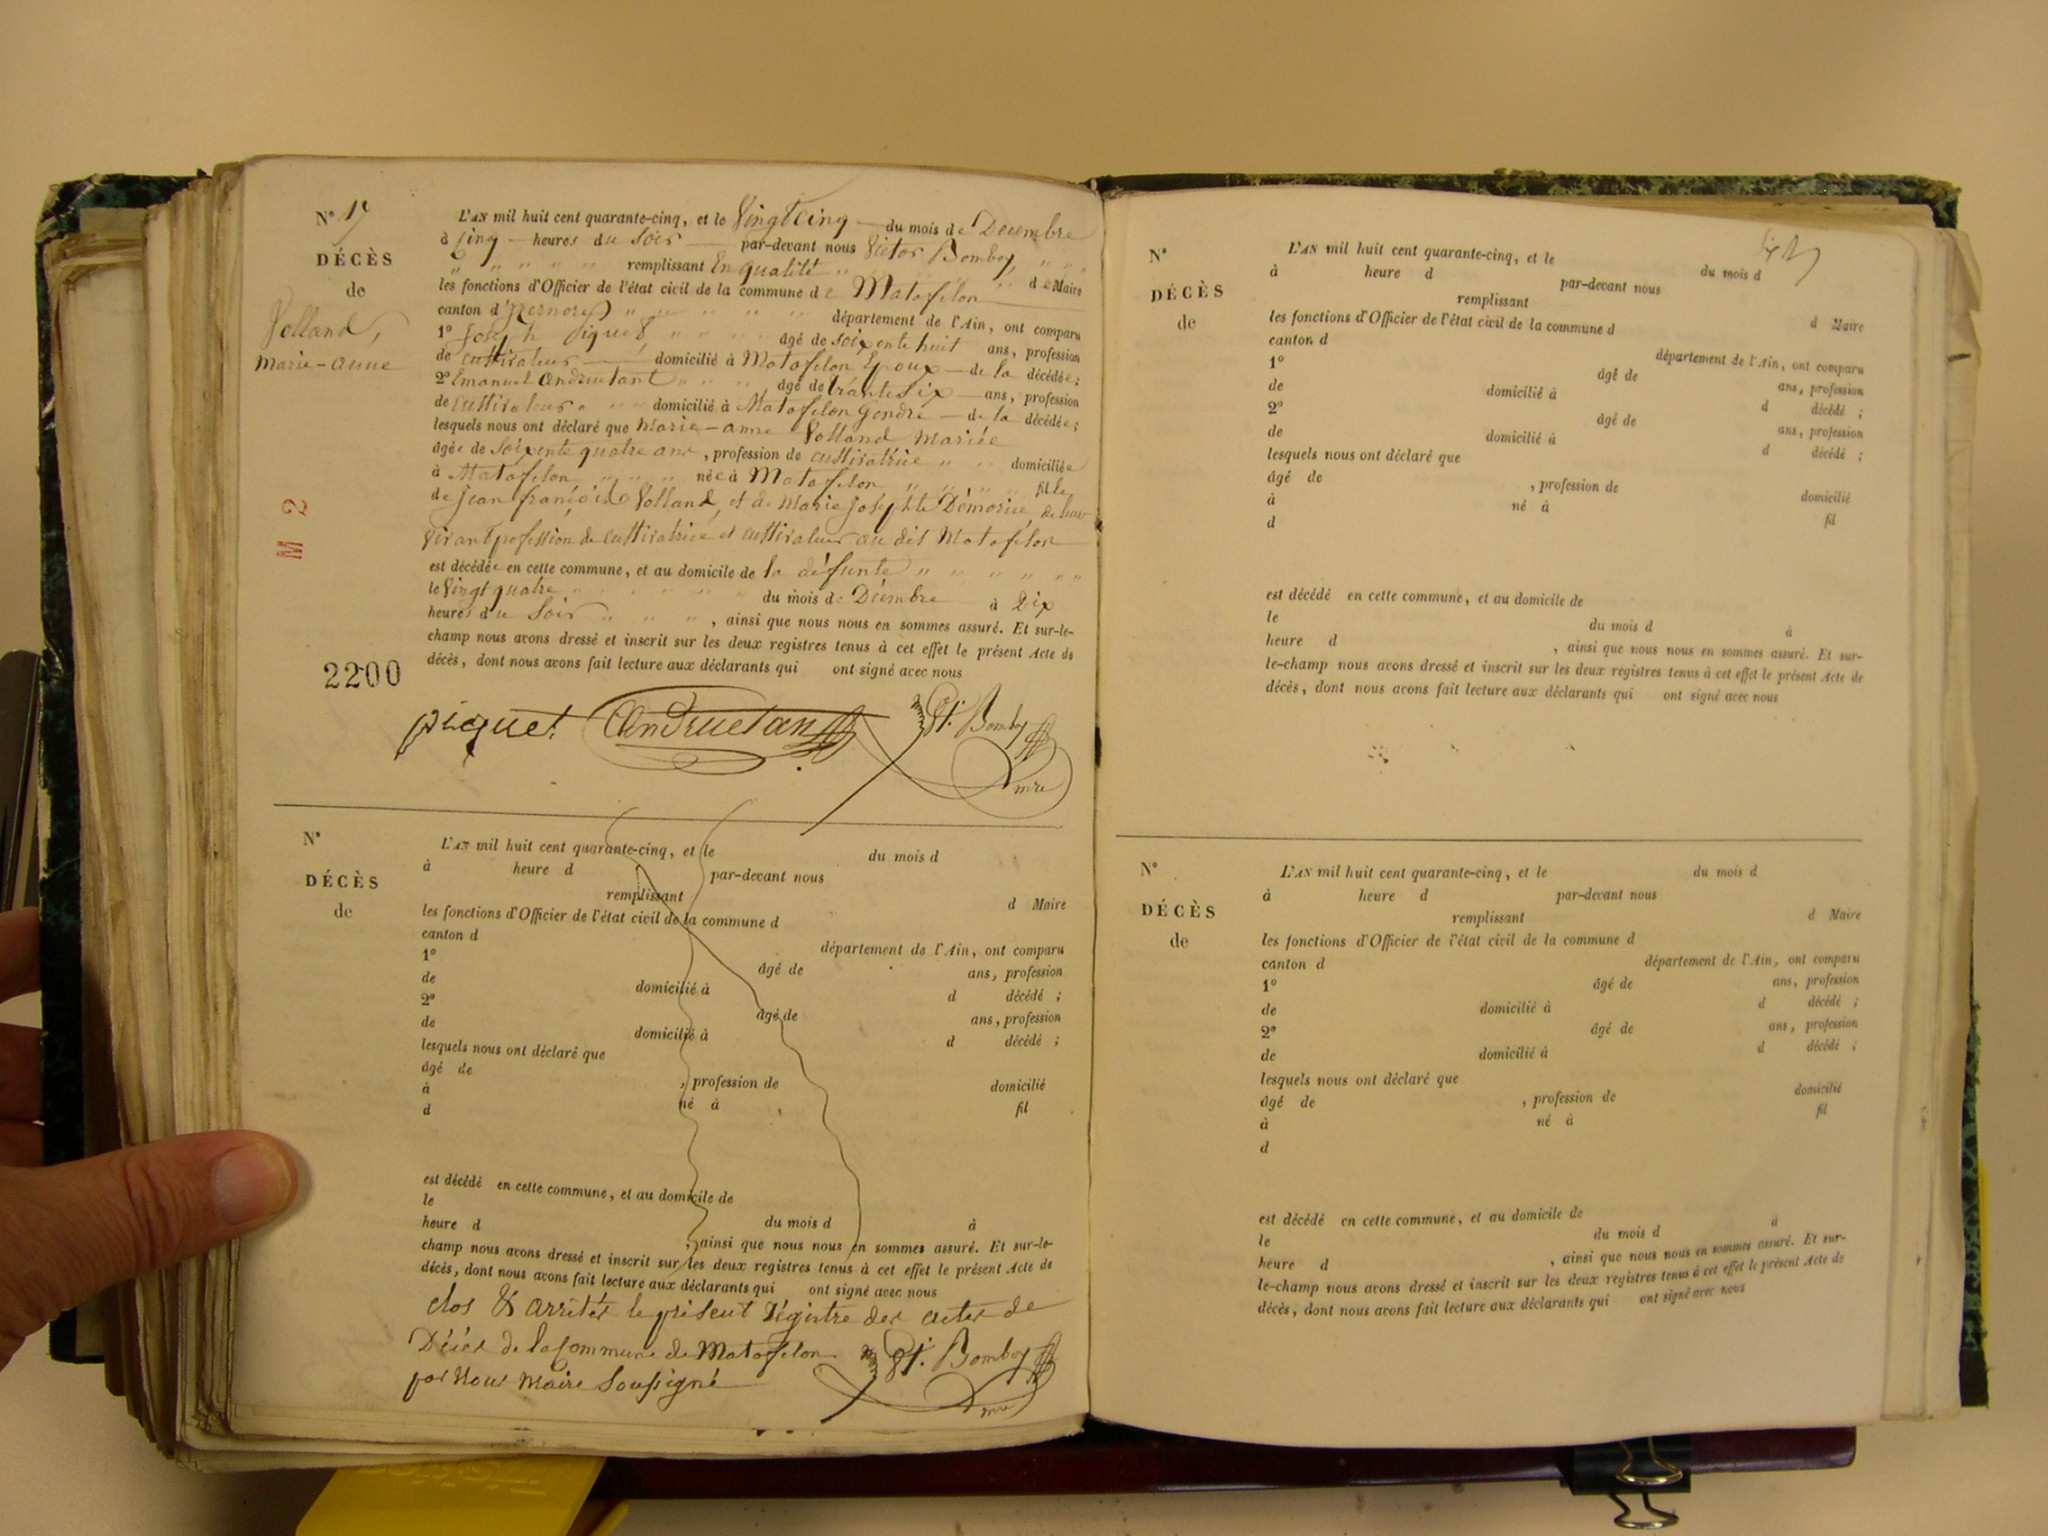 N° 17
DÉCÈS
de
Volland,
Marie-anne
M 2
2200
L'AN mil huit cent quarante-cinq, et le Vingt cinq du mois de Decembre
à Cinq heures du Soir par-devant nous Victor Bomboy
remplissant En qualité de Maire
les fonctions d'Officier de l'état civil de la commune de Matafelon
canton d'Izernore département de l'Ain, ont comparu
1° Joseph âgé de Soixente huit ans, profession
de cultivateur domicilié à Matafelon Epoux de la décédée;
2° Emanuel Andruetant âgé de trante Six ans, profession
de cultivateur domicilié à Matafelon Gendre de la décédée;
lesquels nous ont déclaré que Marie-anne Volland Mariée
âgée de Soixente quatre ans, profession de cultivatrice domiciliée
à Matafelon née à Matafelon fille
de Jean françois Volland, et de Marie Josephte
Vivant profession de cultivatrice et cultivateur au dit Matafelon
est décédée en cette commune, et au domicile de la défunte
le Vingt quatre du mois de Décembre à Dix
heures du Soir, ainsi que nous nous en sommes assuré. Et sur-le-
champ nous avons dressé et inscrit sur les deux registres tenus à cet effet le présent Acte de
décès, dont nous avons fait lecture aux déclarants qui ont signé avec nous
piquet Andruetan Vt. Bomboy
mre
N°
DÉCÈS
de
L'AN mil huit cent quarante-cinq, et le du mois d
à heure d par-devant nous
remplissant d Maire
les fonctions d'Officier de l'état civil de la commune d
canton d département de l'Ain, ont comparu
1° âgé de ans, profession
de domicilié à d décédé ;
2° âgé de ans, profession
de domicilié à d décédé ;
lesquels nous ont déclaré que
âgé de , profession de domicilié
à né à fil
d
est décédé en cette commune, et au domicile de
le du mois d à
heure d , ainsi que nous nous en sommes assuré. Et sur-le-
champ nous avons dressé et inscrit sur les deux registres tenus à cet effet le présent Acte de
décès, dont nous avons fait lecture aux déclarants qui ont signé avec nous
clos & arrêtés le présent Régistre des actes de
Décès de la Commune de Matafelon
par Nous Maire Soussigné
Vt. Bomboy
mre
N°
DÉCÈS
de
L'AN mil huit cent quarante-cinq, et le du mois d
à heure d par-devant nous
remplissant d Maire
les fonctions d'Officier de l'état civil de la commune d
canton d département de l'Ain, ont comparu
1° âgé de ans, profession
de domicilié à d décédé ;
2° âgé de ans, profession
de domicilié à d décédé ;
lesquels nous ont déclaré que
âgé de , profession de domicilié
à né à fil
d
est décédé en cette commune, et au domicile de
le du mois d à
heure d , ainsi que nous nous en sommes assuré. Et sur-
le-champ nous avons dressé et inscrit sur les deux registres tenus à cet effet le présent Acte de
décès, dont nous avons fait lecture aux déclarants qui ont signé avec nous
N°
DÉCÈS
de
L'AN mil huit cent quarante-cinq, et le du mois d
à heure d par-devant nous
remplissant d Maire
les fonctions d'Officier de l'état civil de la commune d
canton d département de l'Ain, ont comparu
1° âgé de ans, profession
de domicilié à d décédé ;
2° âgé de ans, profession
de domicilié à d décédé ;
lesquels nous ont déclaré que
âgé de , profession de domicilié
à né à fil
d
est décédé en cette commune, et au domicile de
le du mois d à
heure d , ainsi que nous nous en sommes assuré. Et sur-
le-champ nous avons dressé et inscrit sur les deux registres tenus à cet effet le présent Acte de
décès, dont nous avons fait lecture aux déclarants qui ont signé avec nous